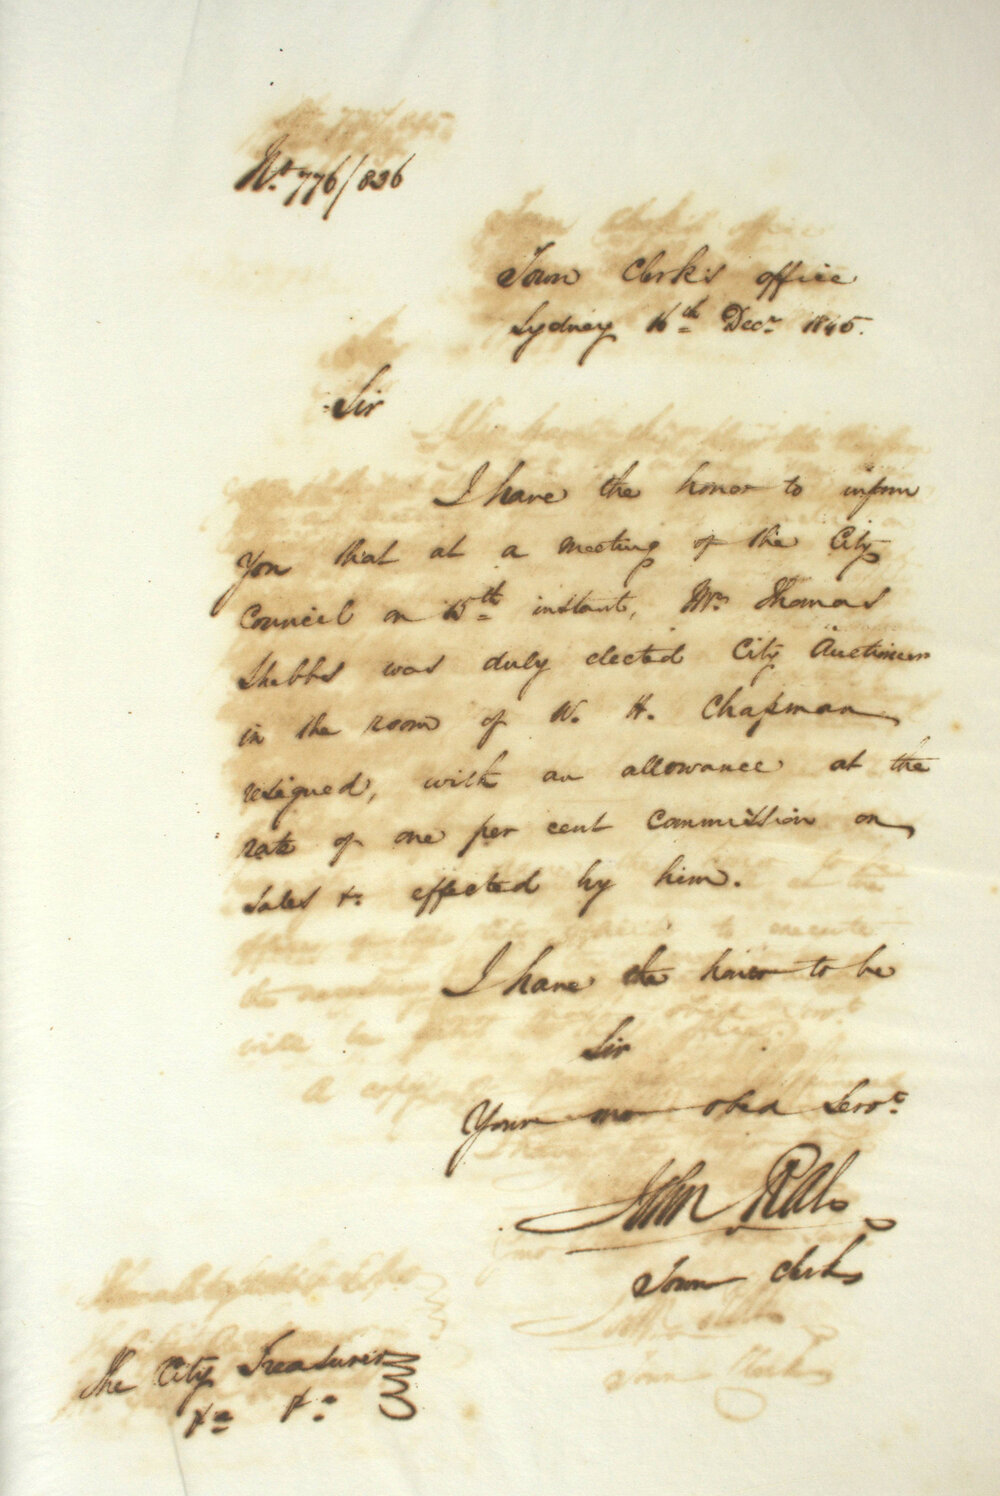 No. 776/836
Town Clerk's office
Sydney 16th Decr 1845.
Sir
I have the honor to inform
You that at a meeting of the City
Council on 15th instant, Mr. Thomas
Stubbs was duly elected City Auctioneer
in the room of W. H. Chapman
resigned, with an allowance at the
rate of one per cent Commission on
Sales &c. effected by him.
I have the honor to be
Sir
Your mo obed Servt
John
Town Clerk
The City Treasurer
&c &c